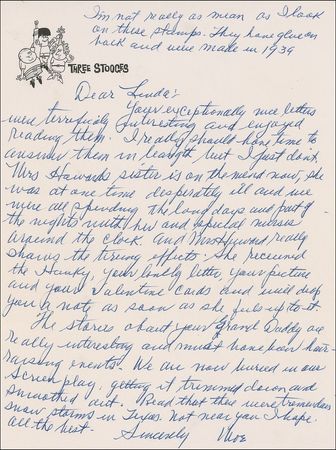 I'm not really as mean as I look
on these stamps. They have glue on
back and were made in 1939
THREE STOOGES
Dear Linda:
Your exceptionally nice letters
were terrifically interesting and enjoyed
reading them. I really should have time to
answer them in length but I just don't.
Mrs Howards sister is on the mend now, she
was at one time desperately ill and we
were all spending the long days and part of
the nights with her and special nurses
around the clock and Mrs Howard really
shows the tiring effects. She received
the Hanky, your lovely letter, your picture
and your Valentine cards and will drop
you a note as soon as she feels up to it.
The stories about your Grand Daddy are
really interesting and must have been hair
raising events. We are now buried in our
Screen play, getting it trimmed down and
smoothed out. Read that there were tremendous
snow storms in Texas. Not near you I hope.
All the best. Sincerely Moe